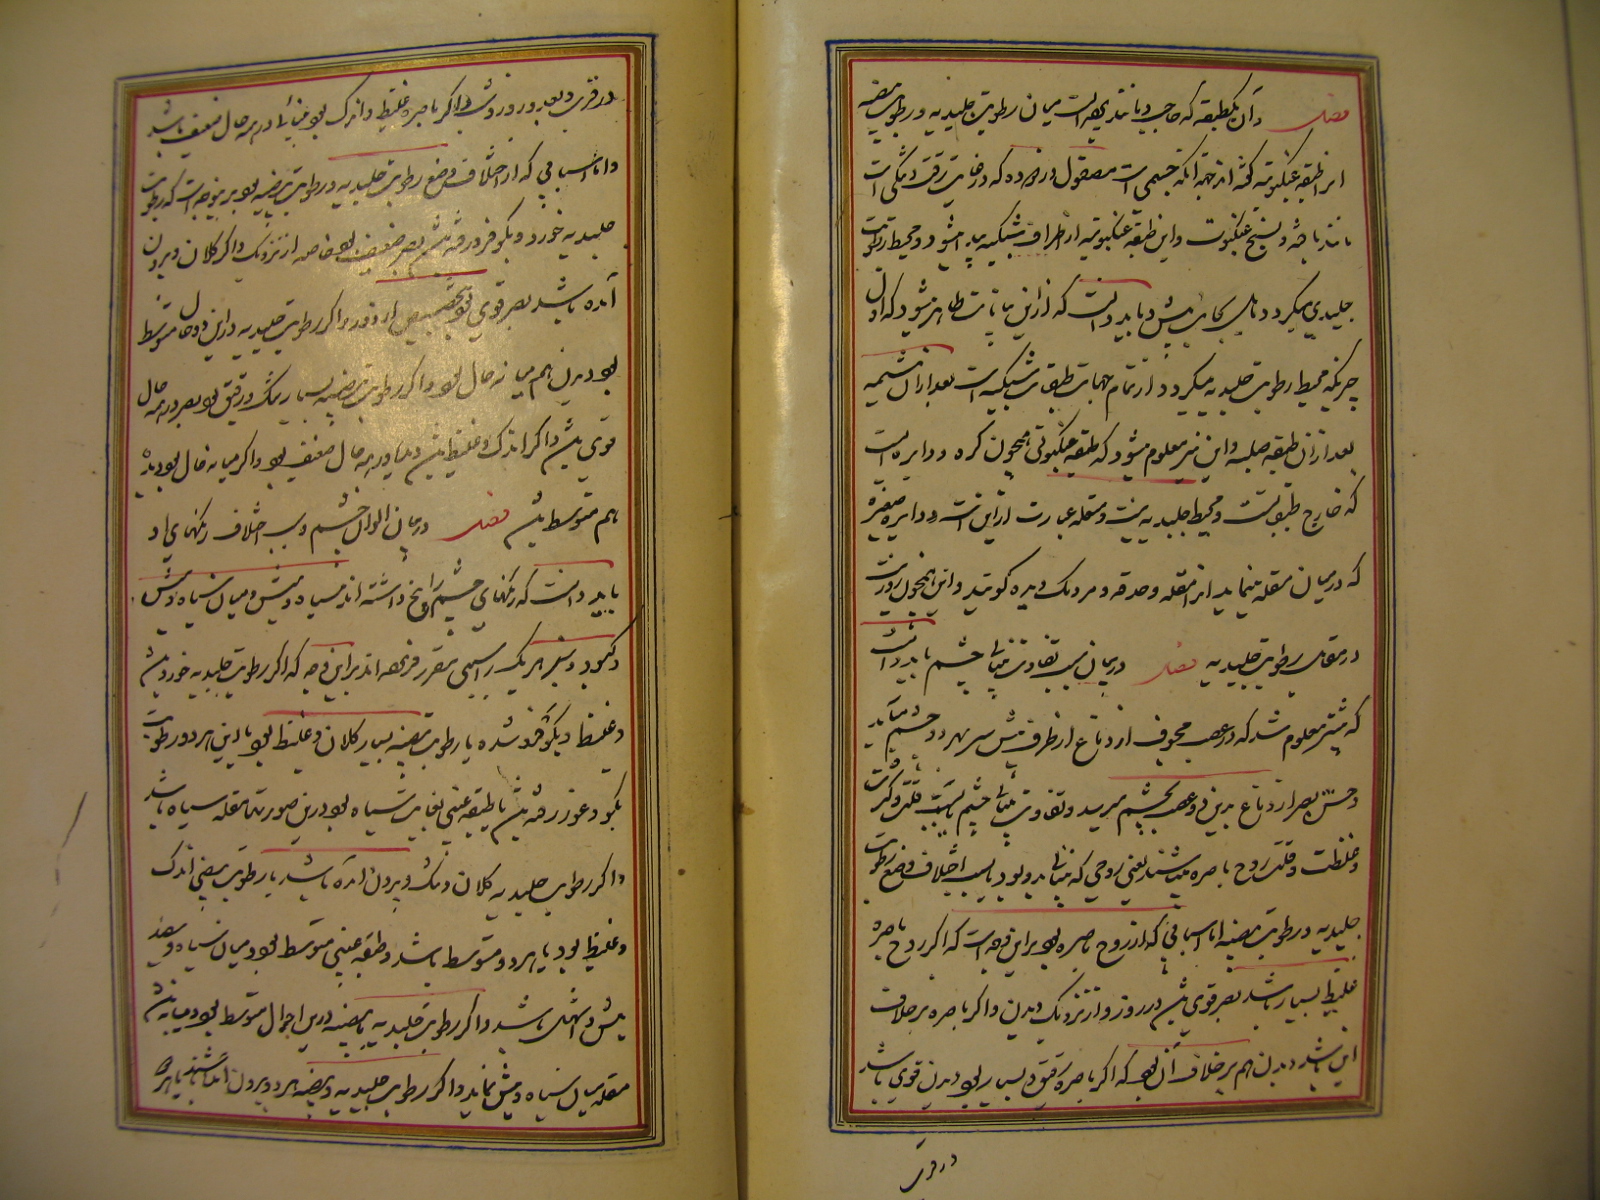 فصل و آن طبقه که حاجب و مانند میان رطوبت جلیدیه و رطوبت بیضیه
این را طبقه عنکبوتیه گفته اند جهة آنکه جسمی است مصقول و در غایت رقت و تنکی است
مانند بافته و نسج عنکبوت و این طبقه عنکبوتیه از اطراف شبکیه پیدا میشود و محیط رطوبت
جلیدی میکردد تا بجانب پیش و باید دانست که از این بیانات ظاهر میشود که اول
چیزیکه محیط رطوبت جلیدیه میکردد از تمام جهات طبقات شبکیه است بعد از آن مشیمیه
بعد از آن طبقه صلبه و این نیز معلوم میشود که طبقه عنکبوتی همچون کره و دایره است
که خارج طبق است و محیط جلیدیه نیست و مقله عبارت از این است و دایره صغیره
که در میان مقله مینماید این را مقله و حدقه و مردمک دیده کویند و این همچون روزنیست
در مقابل رطوبت جلیدیه فصل در بیان سبب تفاوت بینائی چشم باید دانست
که پیشتر معلوم شد که دو عصب مجوف از دماغ از طرف پیش سر بهر دو چشم میآید
و حس بصر از دماغ بدین دو عصب بچشم میرسد و تفاوت بینائی چشم بسبب قلت و کثرت
و غلظت و رقت روح باصره میباشد یعنی روحی که بینائی بدو بود یا بسبب اختلاف وضع رطوبت
جلیدیه و رطوبت بیضیه اما اسبابی که از روح باصره بود بر این وجه است که اکر روح باصره
غلیظ بسیار باشد بصر قوی بود در روز و از نزدیک دیدن و اکر باصره برخلاف
این باشد دیدن هم برخلاف آن بود که اکر باصره رقیق و بسیار بود دیدن قوی باشد
در قرب
در قرب و بعد و روز و شب و اکر باصره غلیظ و اندک بود بینائی در همه حال ضعیف باشد
و اما اسبابی که از اختلاف وضع رطوبت جلیدیه و رطوبت بیضیه بود بر این وجه است که رطوبت
جلیدیه خورد و بکو فرو رفته بصر ضعیف بود خاصه از نزدیک و اکر کلان و بیرون
آمده باشد بصر قوی بود بتخصیص از دور و اکر رطوبت جلیدیه در این دو حال متوسط
بود دیدن هم میانه حال بود و اکر رطوبت بیضیه بسیار تنک و رقیق بود بصر در همه حال
قوی باشد و اکر اندک و غلیظ باشد دیدن در همه حال ضعیف بود و اکر میانه حال بود دیدن
هم متوسط باشد فصل در بیان الوان چشم و سبب اختلاف رنکهای او
باید دانست که رنکهای چشم را پنج داشته اند سیاه و میش و میان سیاه و میش
و کبود و سبز هر یک را سببی مقرر فرموده اند بر این وجه که اکر رطوبت جلیدیه خورد باشد
و غلیظ و بکو فرو شده یا رطوبت بیضیه بسیار کلان و غلیظ بود یا این هر دو رطوبت
بکو و غور رفته باشد یا طبقه عنبی بغایت سیاه بود در این صورتها مقله سیاه باشد
و اکر رطوبت جلیدیه کلان و تنک و بیرون آمده باشد یا رطوبت بیضی اندک
و غلیظ بود یا هر دو متوسط باشد و طبقه عنبی متوسط بود میان سیاه و سفید
میش و اشهل باشد و اکر رطوبت جلیدیه یا بیضیه در این احوال متوسط بود و میانه باشد
مقله میان سیاه و میش نماید و اکر رطوبت جلیدیه و بیضیه هر دو بیرون آمده باشند یا هر دو